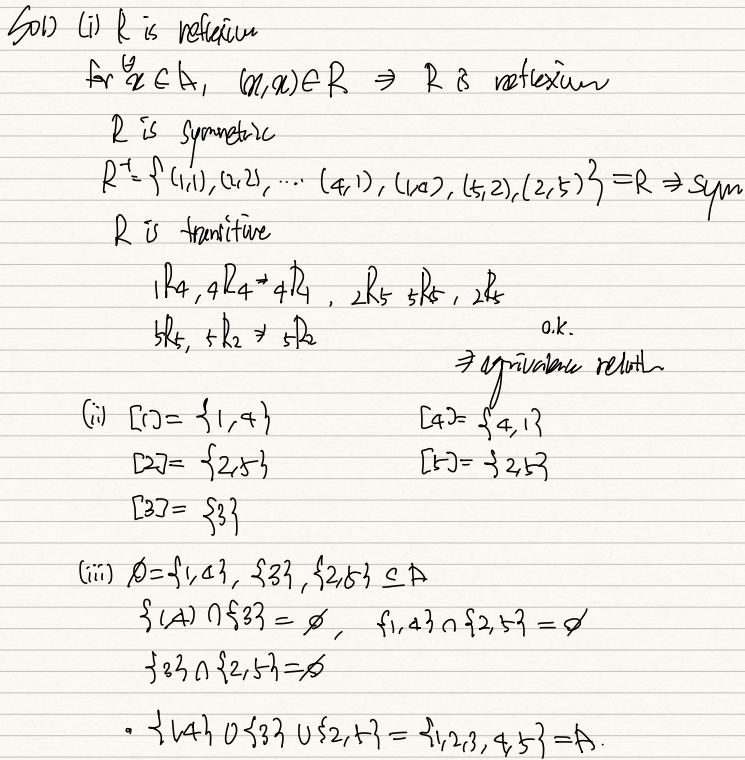 Sol) (i) R is reflexive
for ∀x ∈ A, (x,x) ∈ R ⇒ R is reflexive
R is symmetric
R⁻¹ = {(1,1), (2,2), ⋯ (4,1), (1,4), (5,2), (2,5)} = R ⇒ sym
R is transitive
1R4, 4R4 ⇒ 4R1, 2R5 5R5, 2R5
5R5, 5R2 ⇒ 5R2
o.k.
⇒ equivalence relation
(ii) [1] = {1,4} [4] = {4,1}
[2] = {2,5} [5] = {2,5}
[3] = {3}
(iii) ∅ = {1,4}, {3}, {2,5} ⊆ A
{1,4} ∩ {3} = ∅, {1,4} ∩ {2,5} = ∅
{3} ∩ {2,5} = ∅
• {1,4} ∪ {3} ∪ {2,5} = {1,2,3,4,5} = A.